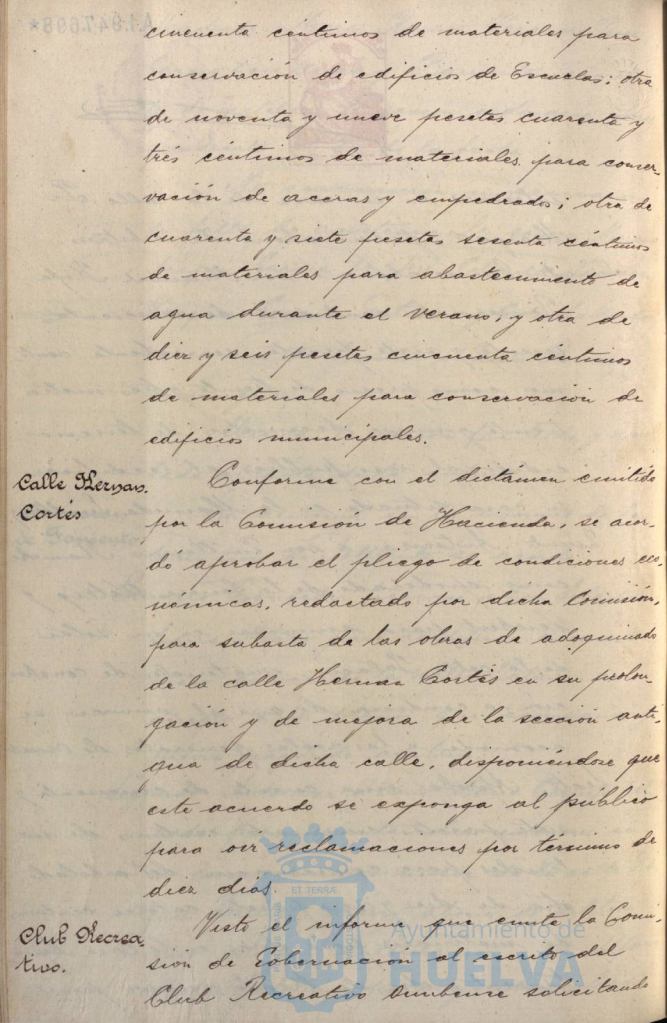 cincuenta céntimos de materiales para
conservación de edificios de Escuelas; otra
de noventa y nueve pesetas cuarenta y
trés céntimos de materiales para conser-
vación de aceras y empedrados; otra de
cuarenta y siete pesetas sesenta céntimos
de materiales para abastecimiento de
agua durante el verano, y otra de
diez y seis pesetas cincuenta céntimos
de materiales para conservación de
edificios municipales.
Calle Hernan.
Cortés
Conforme con el dictámen emitido
por la Comisión de Hacienda, se acor-
dó aprobar el pliego de condiciones eco-
nómicas, redactado por dicha Comisión,
para subasta de las obras de adoquinado
de la calle Hernan Cortés en su prolon-
gación y de mejora de la sección anti-
gua de dicha calle, disponiéndose que
este acuerdo se exponga al público
para oir reclamaciones por término de
diez dias.
Club Recrea-
tivo.
Visto el informe que emite la Comi-
sión de Gobernación al escrito del
Club Recreativo Onubense solicitando
ET TERRÆ
Ayuntamiento de
HUELVA